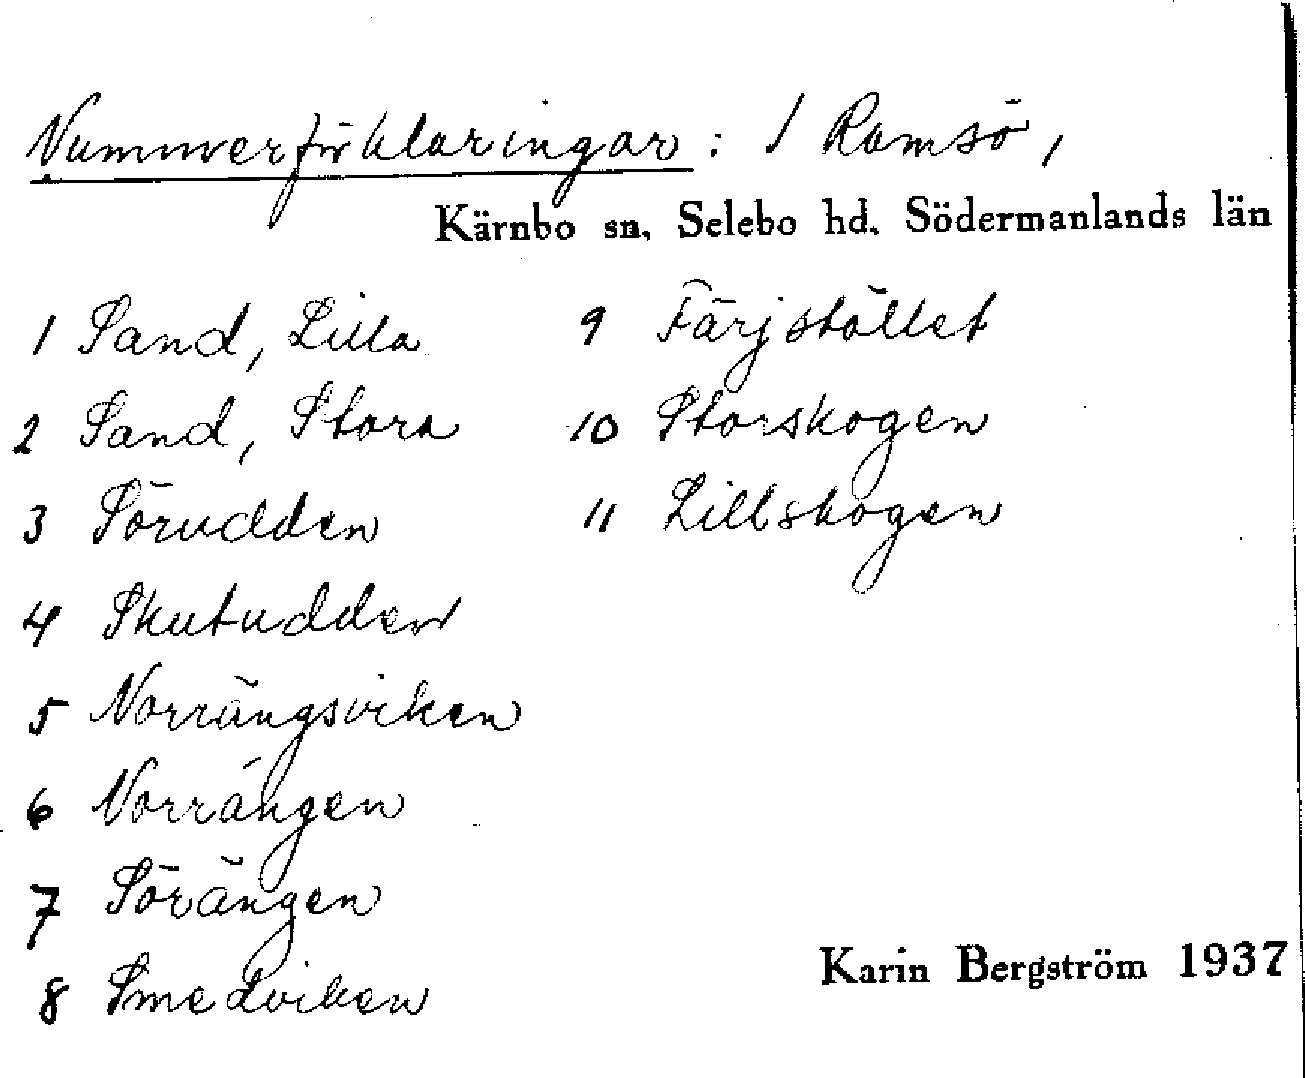 Nummerförklaringar: 1 Ramsö,
Kärnbo sn, Selebo hd. Södermanlands län
1 Sand, Lilla
2 Sand, Stora
3 Sörudden
4 Skutudden
5 Norrängsviken
6 Norrängen
7 Sörängen
8 Smedviken
9 Färjstället
10 Storskogen
11 Lillskogen
Karin Bergström 1937